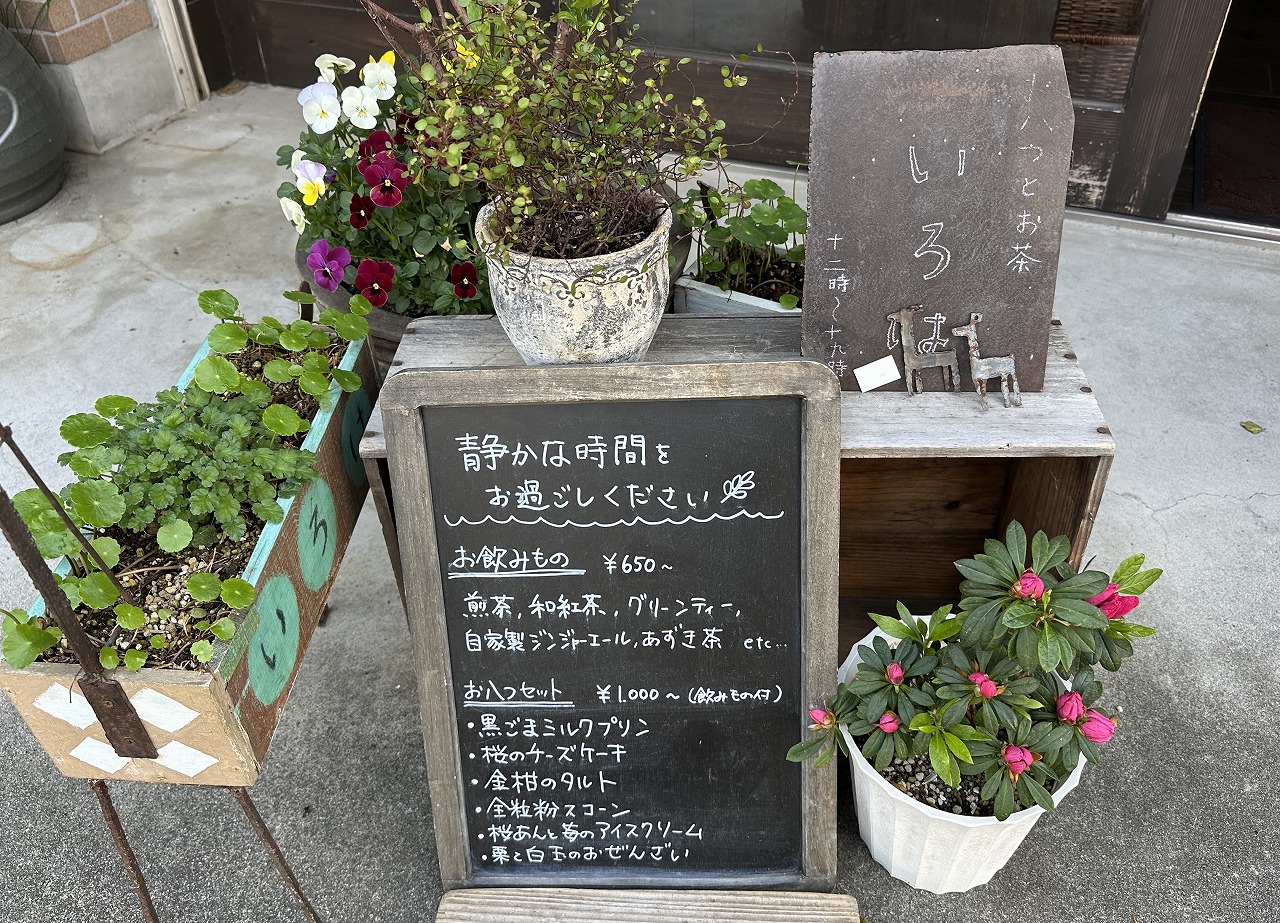 八つとお茶
いろは
十二時〜十九時
静かな時間を
お過ごしください
お飲みもの ¥650~
煎茶, 和紅茶, グリーンティー,
自家製ジンジャーエール, あずき茶 etc...
お八つセット ¥1.000~(飲みもの付)
・黒ごまミルクプリン
・桜のチーズケーキ
・金柑のタルト
・全粒粉スコーン
・桜あんと苺のアイスクリーム
・栗と白玉のおぜんざい
い
ろ